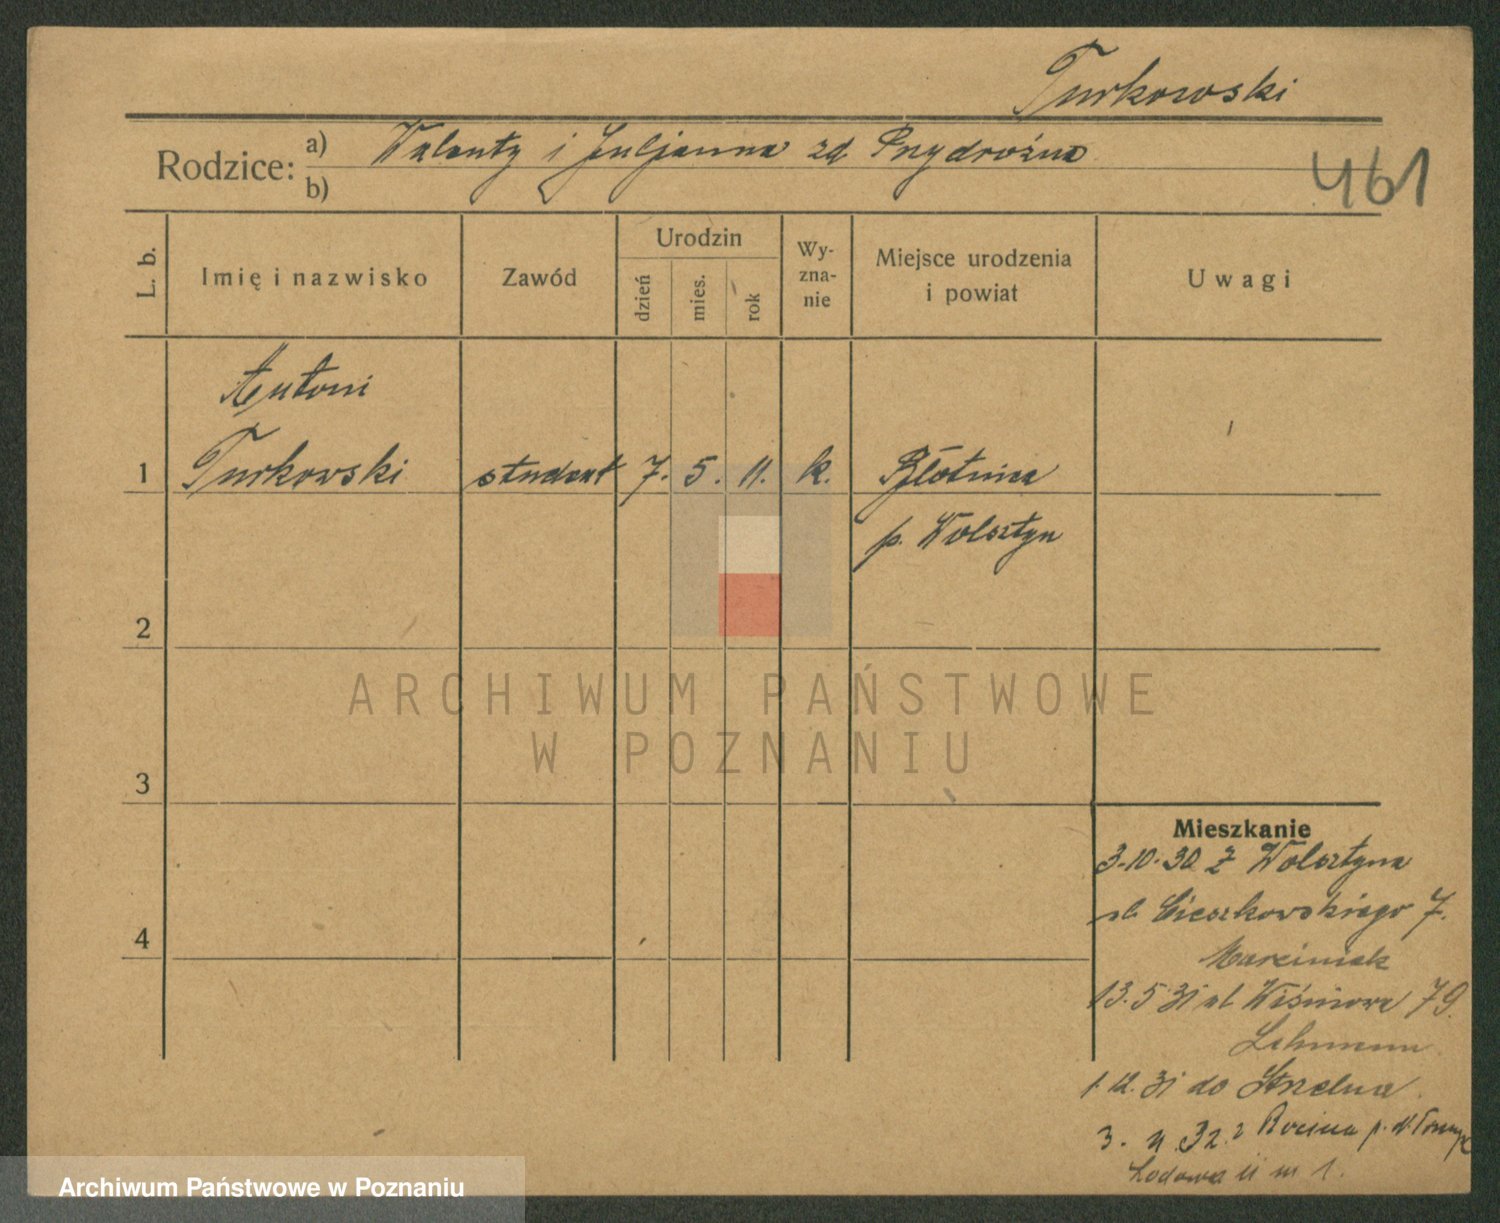 Turkowski
Rodzice: a) Walenty i Juljanna zd Przydrożna
b)
461
L. b.
Imię i nazwisko
Zawód
Urodzin
dzień
mies.
rok
Wy-
zna-
nie
Miejsce urodzenia
i powiat
Uwagi
Antoni
1 Turkowski student 7. 5. 11. k. Błotnica
p. Wolsztyn
2
ARCHIWUM PAŃSTWOWE
W POZNANIU
3
Mieszkanie
3.10.30 z Wolsztyna
ul. Cieszkowskiego 7.
4
Marciniak
13.5.31 ul Wiśniowa 79.
Lehmann
1.12.31 do Strzelna.
3. 4.32. z p. N. Tomyśl
Lodowa 11 m 1.
Archiwum Państwowe w Poznaniu